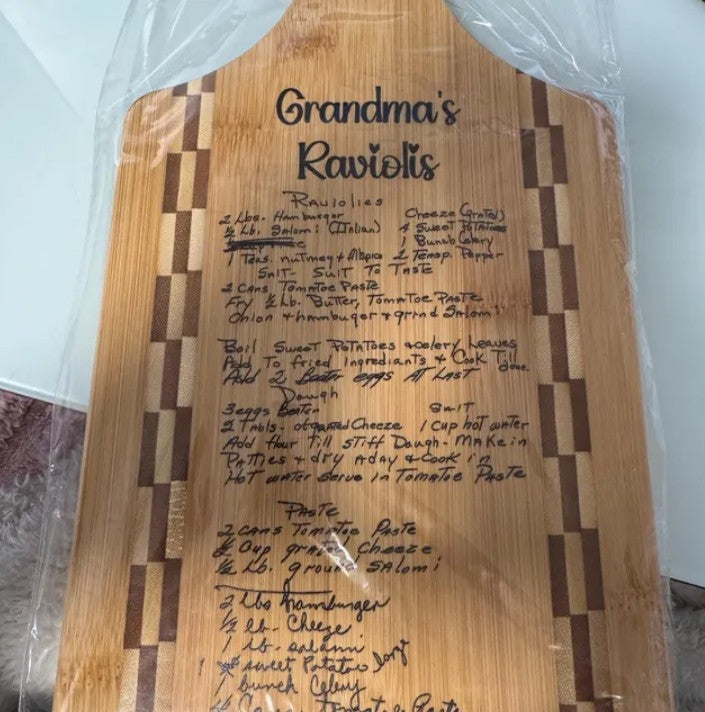 Grandma's
Raviolis
Raviolies
2 Lbs. Hamburger Cheeze (Grated)
½ Lb. Salomi (Italian) 4 Sweet Potatoes
1 Bunch Celery
1 Teas. nutmeg & Allspice 2 Teasp. Pepper
Salt - Suit To Taste
2 Cans Tomatoe Paste
Fry ½ Lb. Butter, Tomatoe Paste
Onion & hambuger & grind Salomi
Boil Sweet Potatoes & celery Leaves
Add To fried Ingrediants & Cook Till done.
Add 2 Beater eggs At Last
Daugh
3 eggs Beater Salt
2 Tabls - of grated Cheeze 1 Cup hot water
Add flour Till stiff Daugh - Make in
Patties & dry a day & Cook in
Hot water Serve in Tomatoe Paste
Paste
2 cans Tomatoe Paste
Cup grated Cheeze
½ Lb. ground Salomi
2 lbs hamburger
½ lb. Cheeze
1 lb. salami
sweet Potatoe large
1 bunch Celery
4 Cans Tomatoe Paste